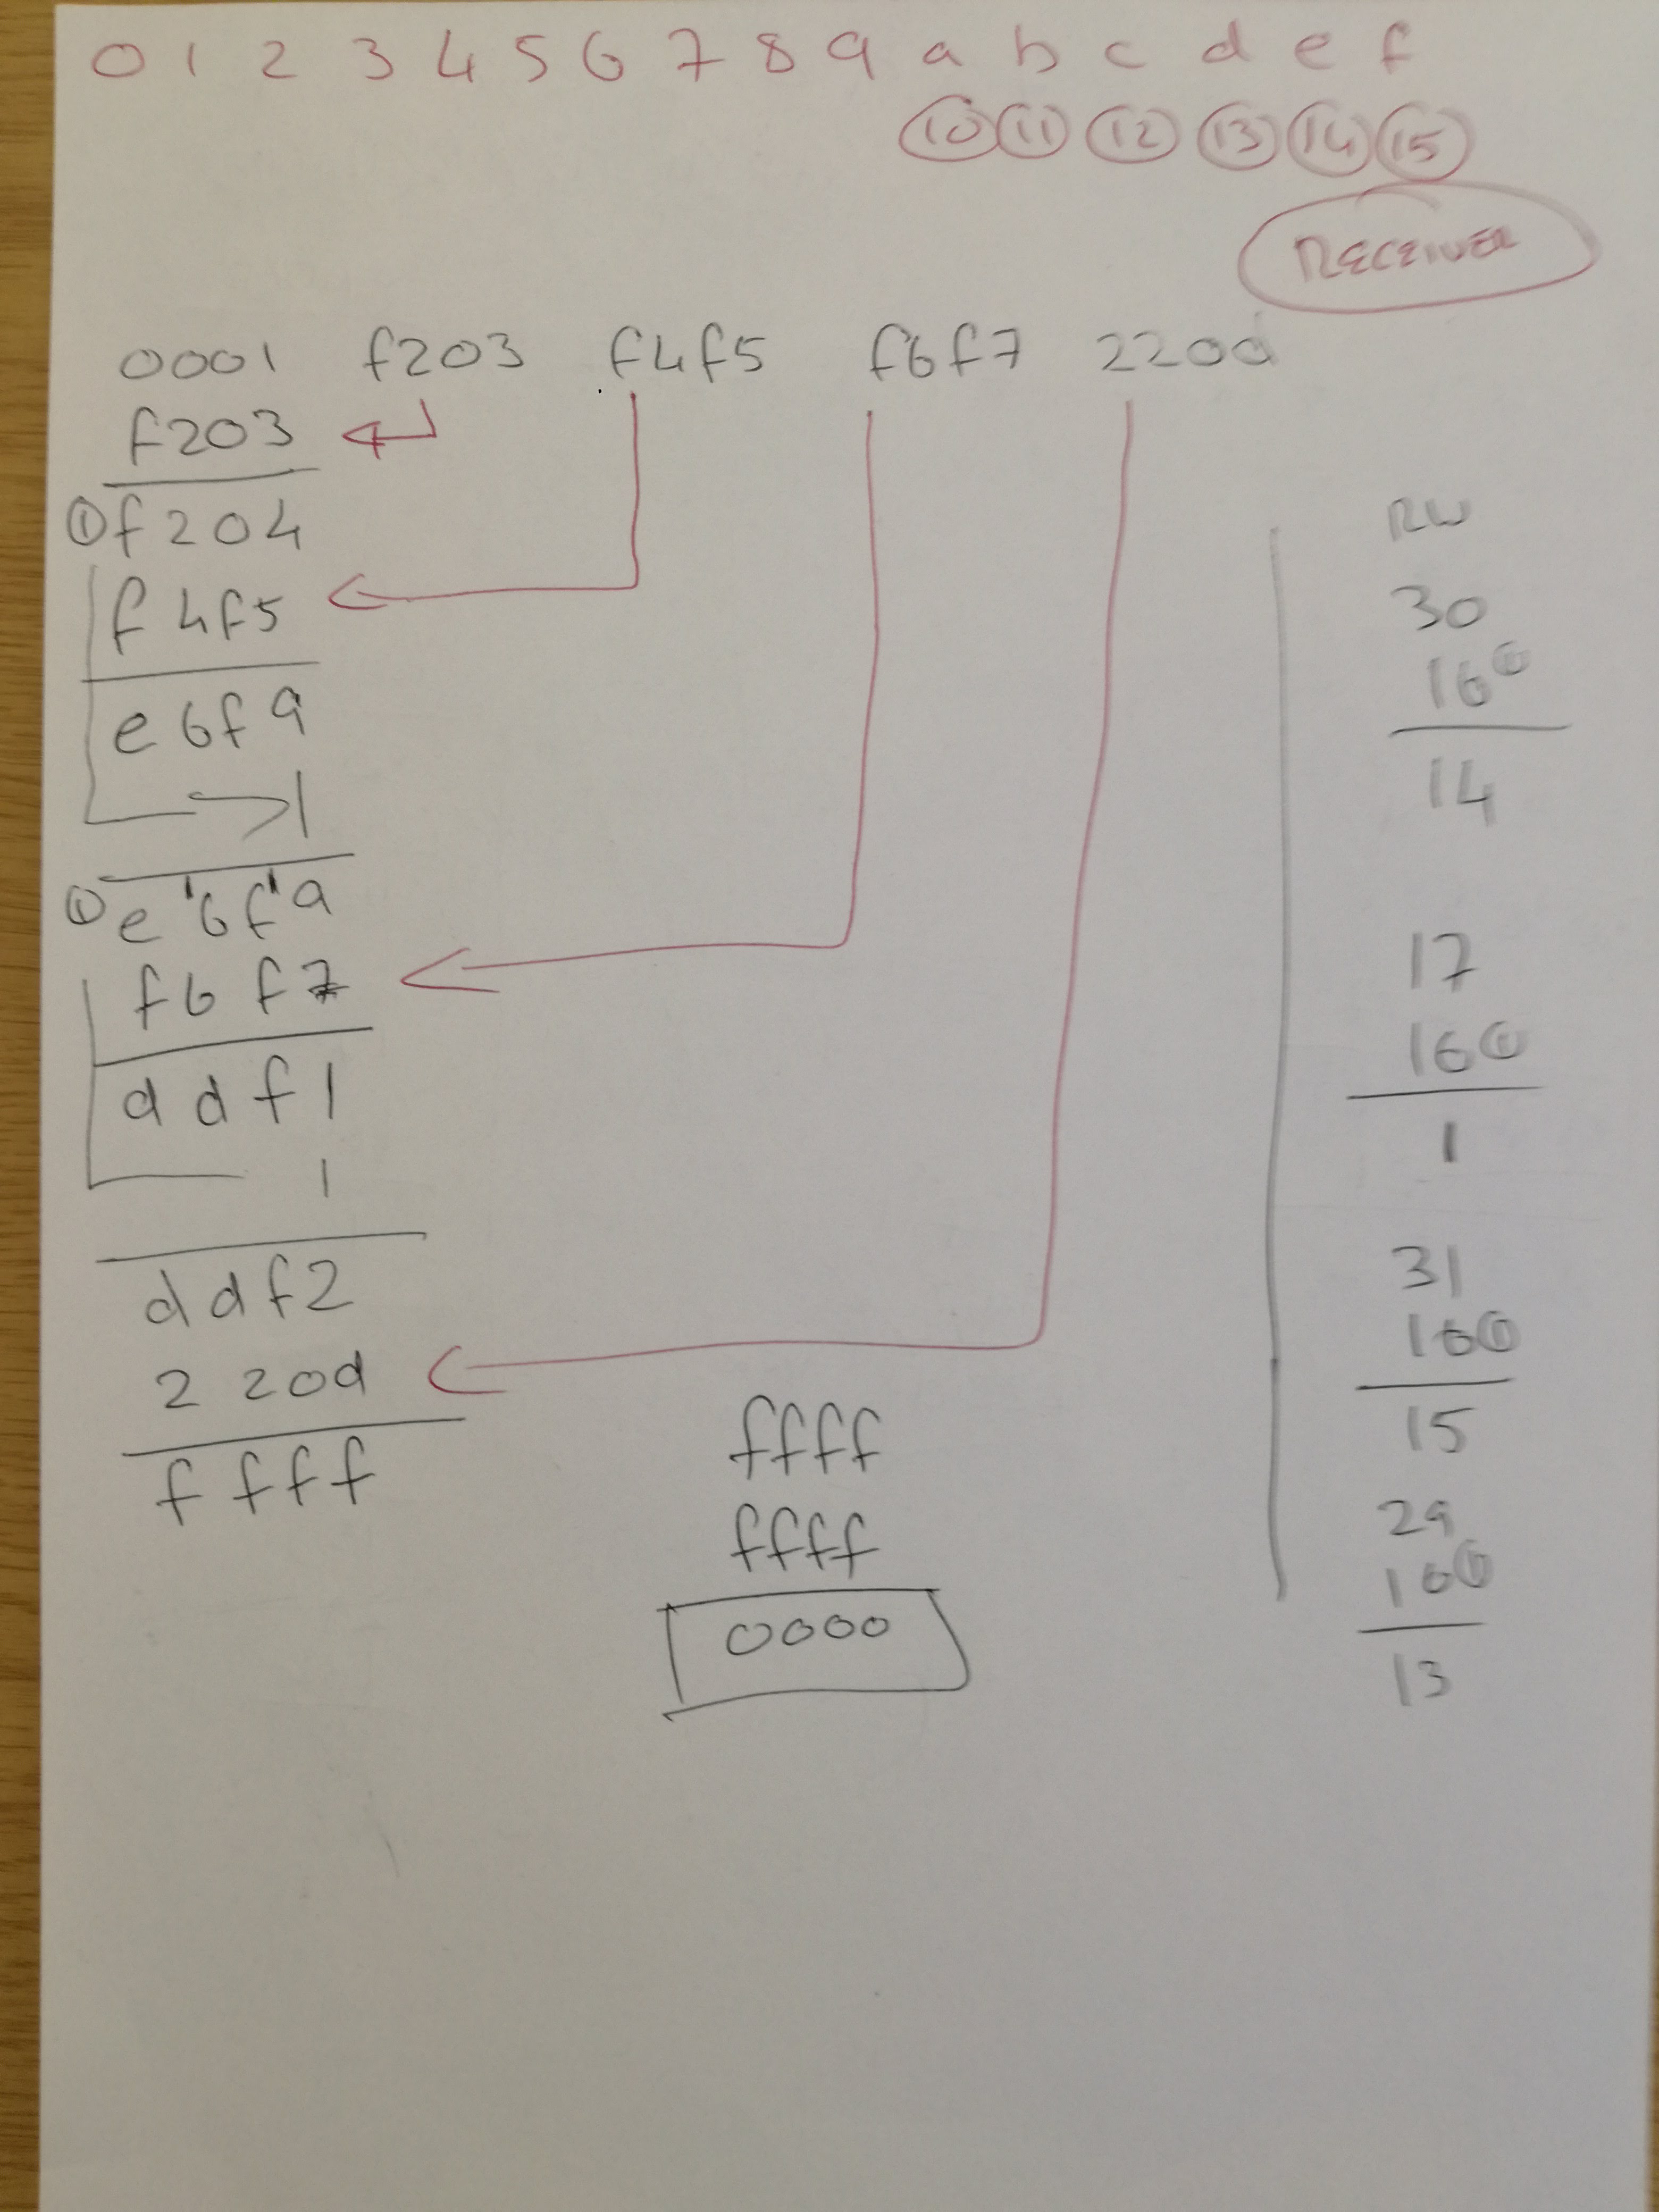 0 1 2 3 4 5 6 7 8 9 a b c d e f
10 11 12 13 14 15
RECEIVER
0001 f203 f4f5 f6f7 220d
f203
1 f204
f4f5
e6f9
1
1 e 1 6 f 1 9
f6f7
ddf1
1
ddf2
220d
ffff
ffff
ffff
0000
RW
30
16 1
14
17
16 1
1
31
16 1
15
29
16 1
13